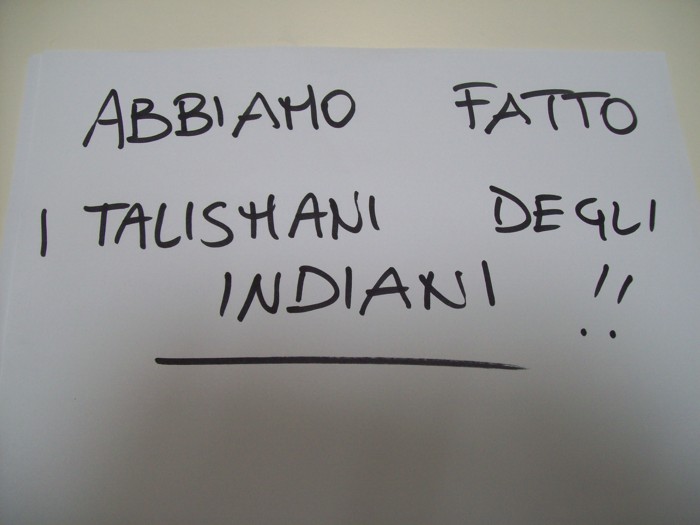 ABBIAMO FATTO
I TALISMANI DEGLI
INDIANI !!